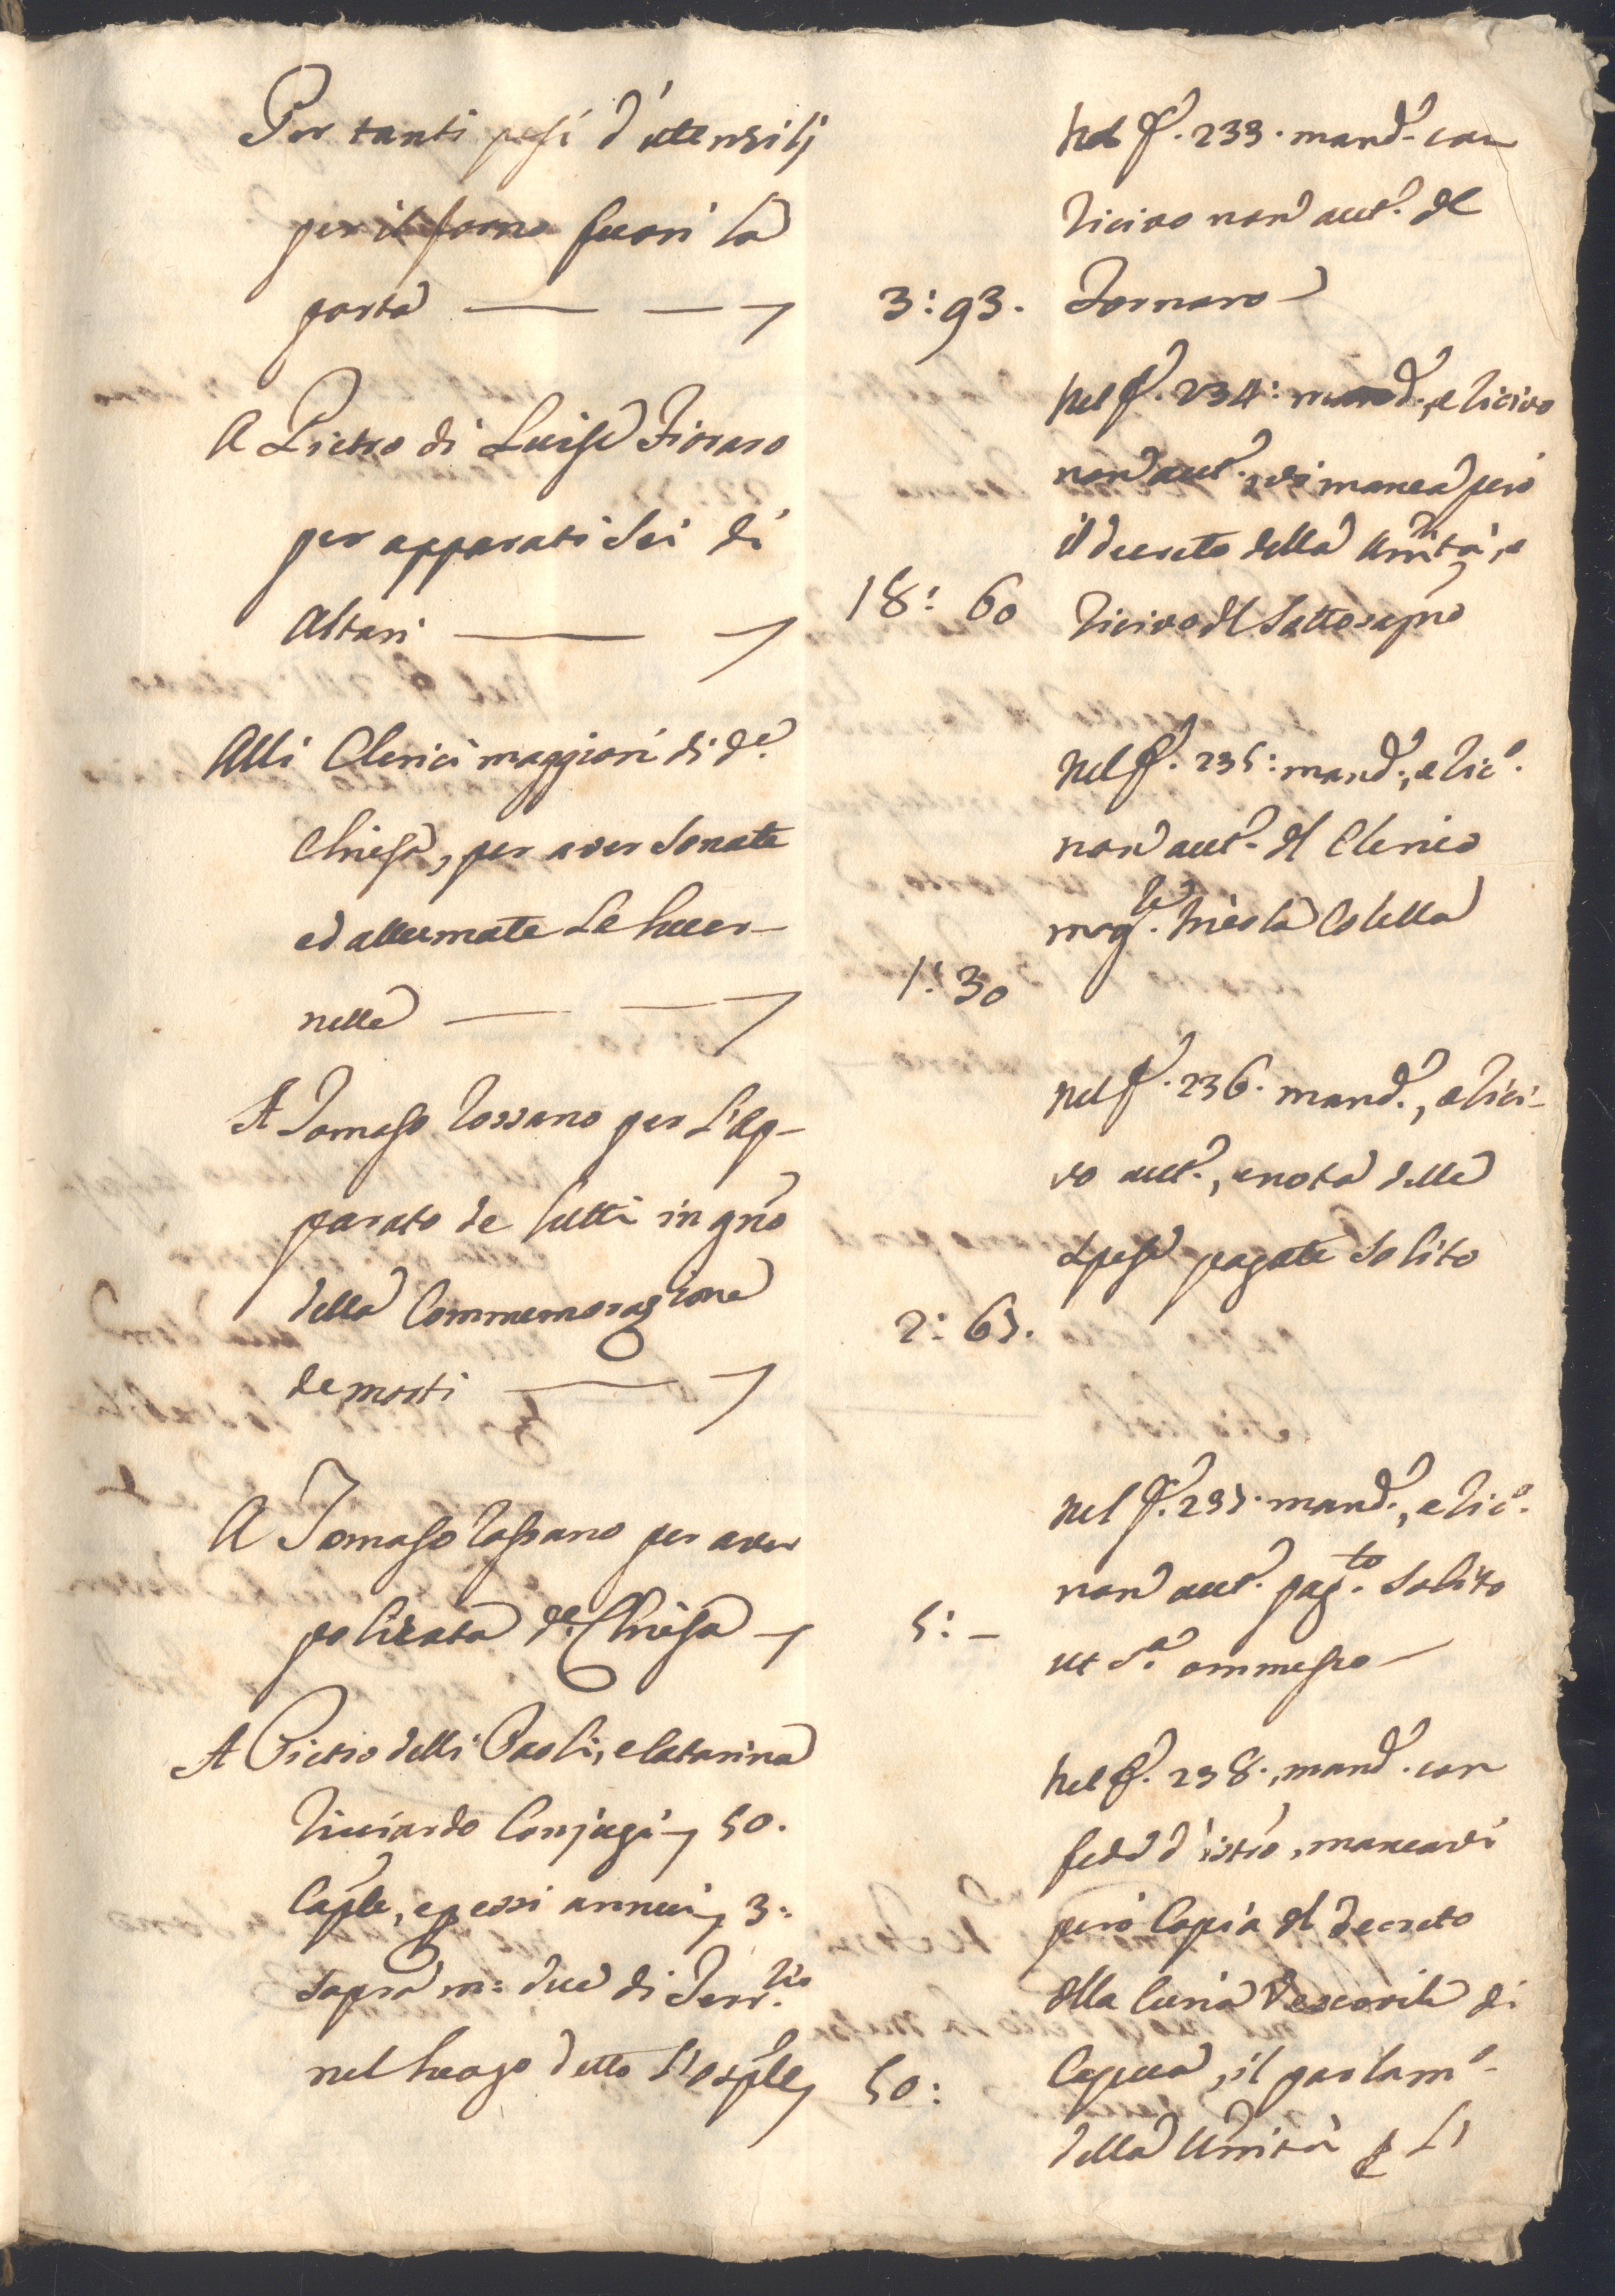 Per tanti pesi d'utensilj
per il forno fuori la
porta
3: 93.
Nel f. 233. mand. con
ricivo non aut. del
Fornaro
A Pietro di Luise Fioraro
per apparati sei di
Altari
18: 60
Nel f. 234: mand., e ricivo
non aut. vi manca però
il decreto della Unità, e
ricivo del sottoscritto
Alli Clerici maggiori di d.ª
Chiesa, per aver sonate
ed allumate le lucer-
nelle
1: 30
Nel f. 235: mand., e ric.º
non aut. del Clerico
mag.re Nicola Colella
A Tomaso Rossano per l'ap-
parato de lutti in gno
della Commemorazione
de morti
2: 65.
Nel f. 236. mand., e rici-
vo aut., e nota delle
spese pagate solito
A Tomaso Rossano per aver
polizata d.ª Chiesa
5: –
Nel f. 237. mand., e ric.º
non aut. pag.to solito
ut s.ª ommesso
A Pietro delli Paoli, e Catarina
Ricciardo Conjugi 50.
Caple, e p essi annui 3:
sopra m: due di Terr.rio
nel luogo detto l'Osple
50:
Nel f. 238., mand. con
fede d'istro, mancavi
però Copia del decreto
della Curia Vescovile di
Capua, il parlam.º
della Unità p l'